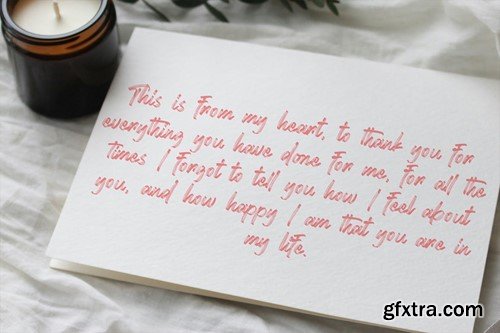 This is from my heart, to thank you for
everything you have done for me, For all the
times I Forgot to tell you how I Feel about
you, and how happy I am that you are in
my life.
gfxtra.com